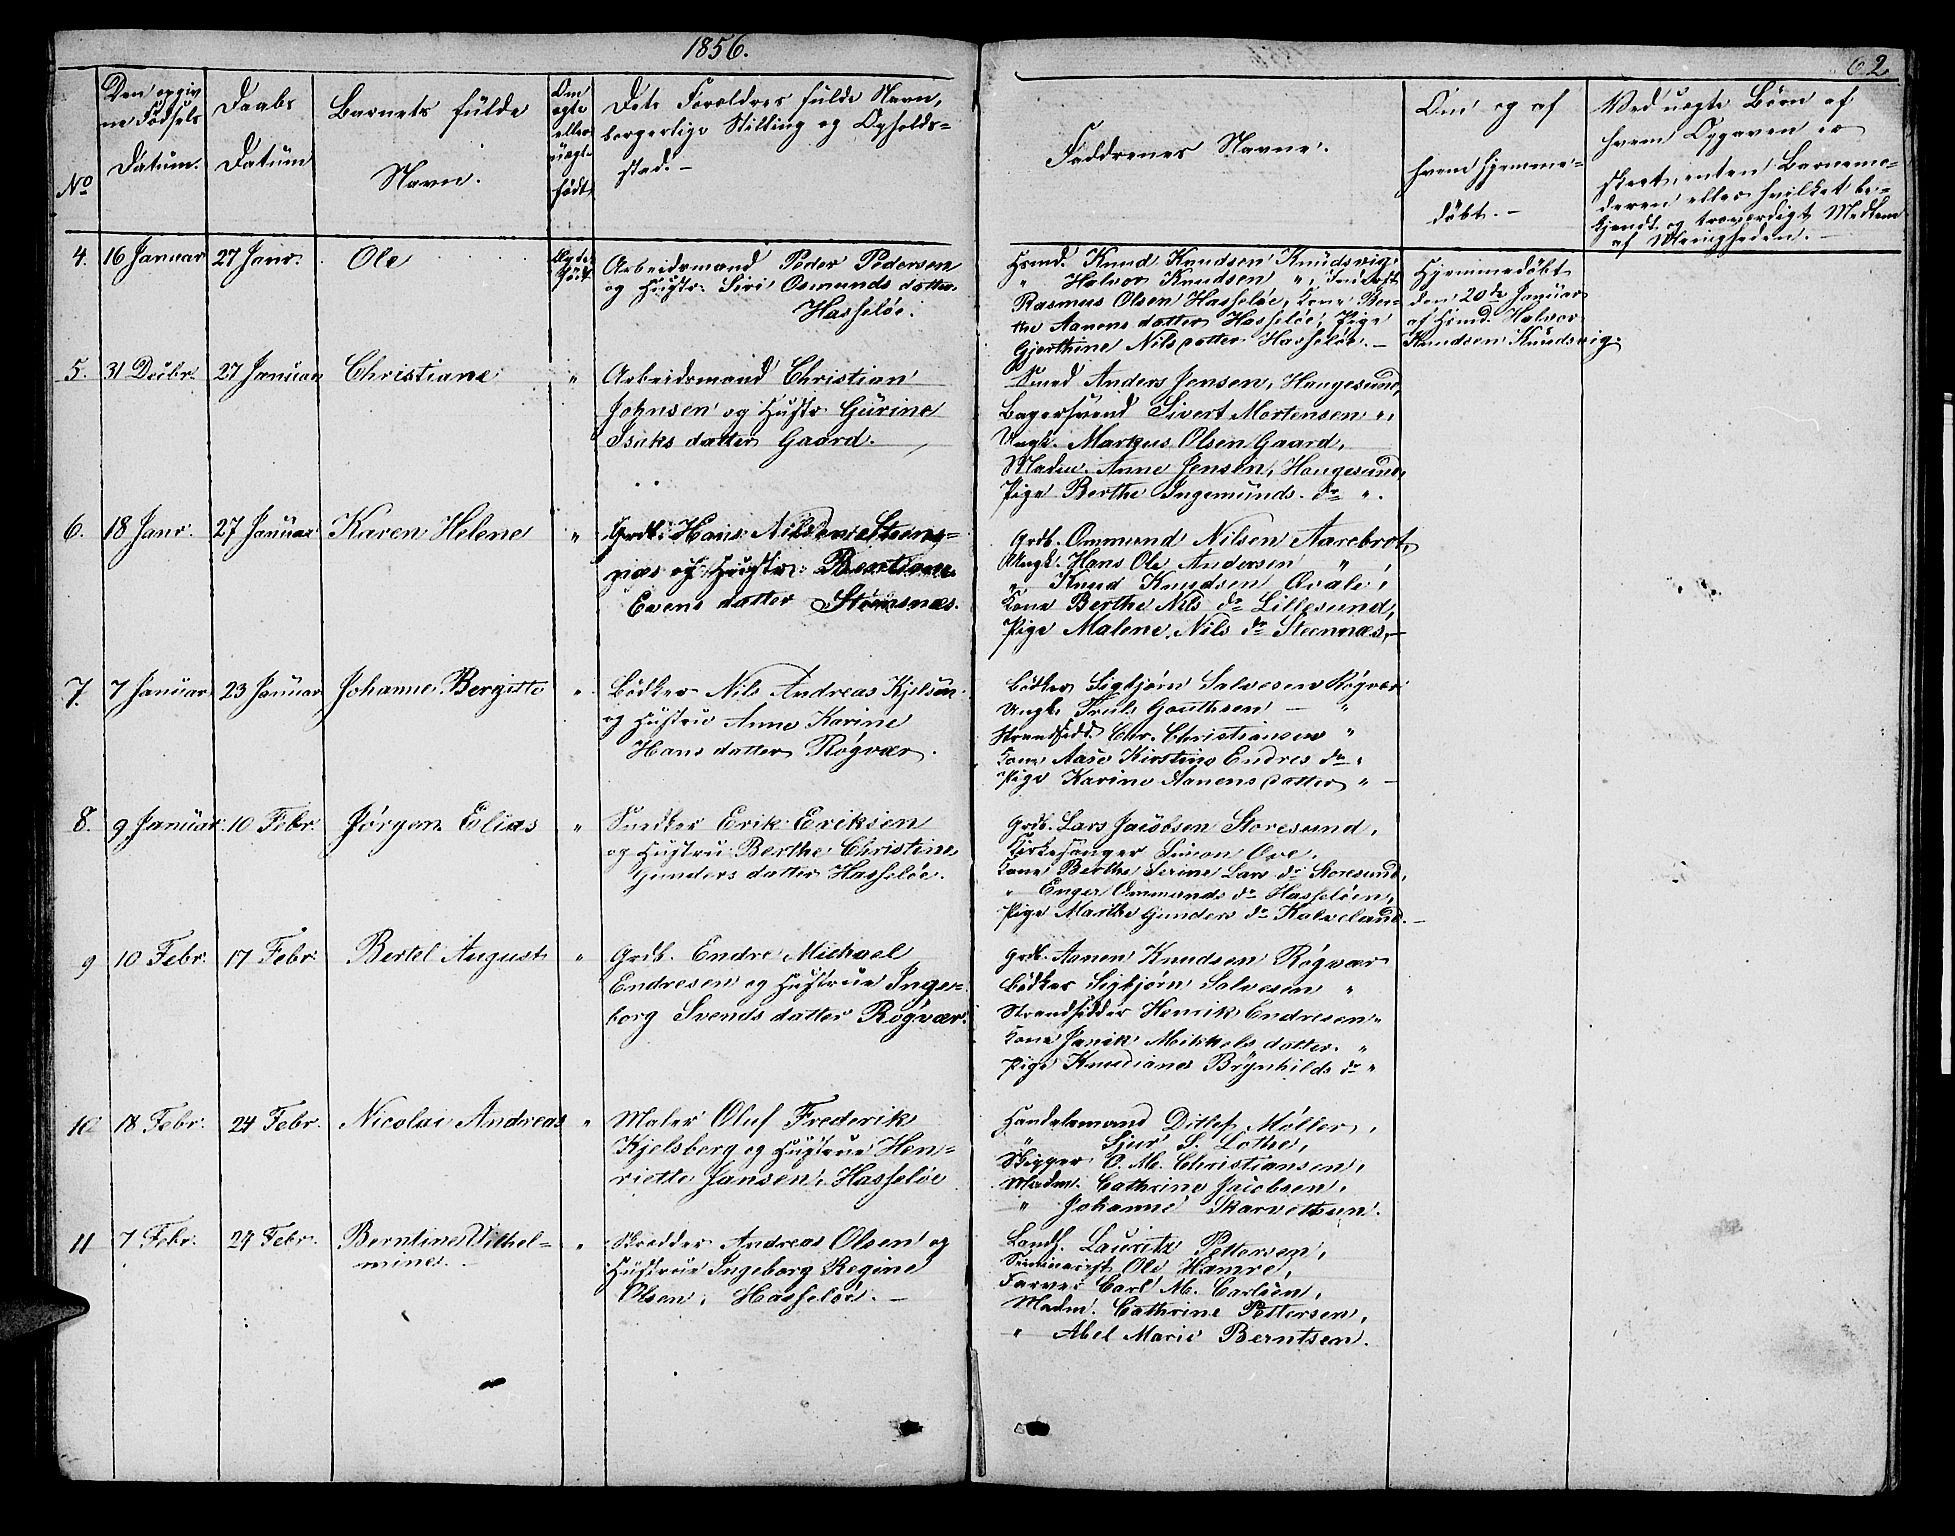 1856.
62
No
Den opgiv
ne Fødsels
Datum.
Daabs
Datum
Barnets fulde
Navn.
Om
ægte
eller
uægte
født.
Dets Forældres fulde Navn,
borgerlige Stilling og Opholds=
stad. -
Faddrenes Navne.
Om og af
hvem hjemme-
døbt. -
Ved uægte Børn af
hvem Opgaven er
skeet, enten Barneme-
deren eller hvilket be-
kjendt og troværdigt Medlem
af Menigheden. -
4. 16 Januar 27 Janr. Ole Ægte født
Arbeidsmand Peder Pedersen
og Hustr. Siri Osmunds datter.
Hasseløe.
Hsmd. Knud Knudsen Knudsvig.
" Halvor Knudsen "
Rasmus Olsen Hasseløe, Kone Ber-
the Aanens datter Hasseløe, Pige
Gjerthine Nils datter Hasseløe. -
Hjemmedøbt
den 20de Januar
af Hsmd. Halvor
Knudsen Knudsvig.
5. 31 Decbr. 27 Januar Christiane "
Arbeidsmand Christian
Johnsen og Hustr Gurine
Isaks datter Gaard.
Smed Anders Jensen, Haugesund,
Bagersvend Sivert Mortensen "
Ungk. Markus Olsen Gaard,
Madm. Anne Jensen, Haugesund,
Pige Berthe Ingemunds. dr ".
6. 18 Janr. 27 Januar Karen Helene "
Grdb. Hans Nilsen Steens=
næs og Hustr. Bertione
Evens datter Steensnæs.
Grdb. Ommund Nilsen Aarebrot,
Ungk. Hans Ole Andersen " ,
" Knud Knudsen Qvale,
Kone Berthe Nils dr Lillesund,
Pige Malene Nils dr Steennæs, -
7. 7 Januar 23 Januar Johanne Bergitte "
Bødker Nils Andreas Kjelsen
og Hustru Anne Karine
Hans datter Røgvær.
Bødker Sigbjørn Salvesen Røgvær
Ungk. Truls Gauthsen - "
Strandsidd. Chr. Christiansen "
Kone Aase Kirstine Endres dr "
Pige Karine Aanens datter " -
8. 9 Januar 10 Febr. Jørgen Elias "
Snedker Erik Eriksen
og Hustru Berthe Christine
Gunders datter Hasseløe.
Grdb. Lars Jacobsen Storesund,
Kirkesanger Simon Ove,
Kone Berthe Serine Lars dr Storesund,
" Enger Ommunds dr Hasseløen,
Pige Marthe Gunders dr Kalveland. -
9 10 Febr. 17 Febr. Bertel August "
Grdb. Endre Michael
Endresen og Hustrue Inge=
borg Svends datter Røgvær.
Grdb. Aanen Knudsen Røgvær
Bødker Sigbjørn Salvesen "
Strandsidder Henrik Endresen "
Kone Janik Mikkels datter. "
Pige Knudiane Brynhilds dr "
10 18 Febr. 24 Febr. Nicolai Andreas "
Maler Oluf Frederik
Kjelsberg og Hustrue Hen=
riette Jansen, Hasseløe
Handelsmand Ditlef Møller,
" Sjur S. Lothe,
Skipper O. M. Christiansen,
Madm. Cathrine Jacobsen,
" Johanne Skarvetsun.
11 7 Febr. 24 Febr. Berntine Vilhel=
mine. "
Skredder Andreas Olsen og
Hustrue Ingeborg Regine
Olsen, Hasseløe. -
Landh. Lauritz Pettersen,
Seminarist Ole Hamre,
Farver Carl M. Carlsen,
Madm. Cathrine Pettersen,
" Abel Marie Berntsen.